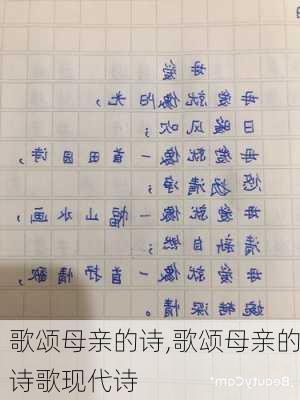 母爱
母爱就像阳光，
日暖风吹；
母爱就像一首田园诗，
悠远清净；
母爱就像一幅山水画，
清新自然；
母爱就像一首抒情歌，
婉转深情。
歌颂母亲的诗,歌颂母亲的
诗歌现代诗
BeautyCam